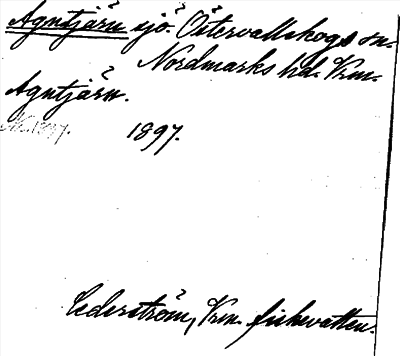 Agntjärn sjö. Östervallskogs sn.
Nordmarks hd. Vrm.
Agntjärn.
1897.
Cederström, Vrm. fiskevatten.